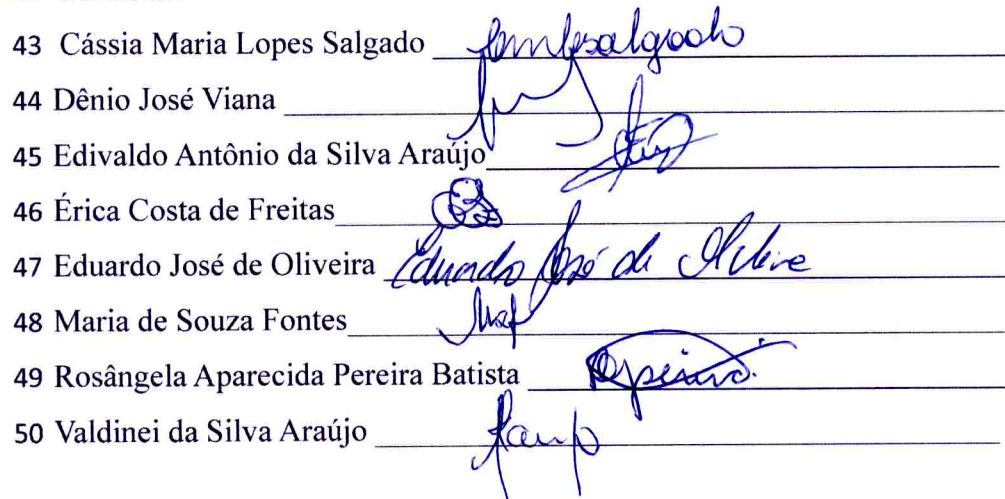 43 Cássia Maria Lopes Salgado
44 Dênio José Viana
45 Edivaldo Antônio da Silva Araújo
46 Érica Costa de Freitas
47 Eduardo José de Oliveira Eduardo José de Oliveira
48 Maria de Souza Fontes
49 Rosângela Aparecida Pereira Batista
50 Valdinei da Silva Araújo